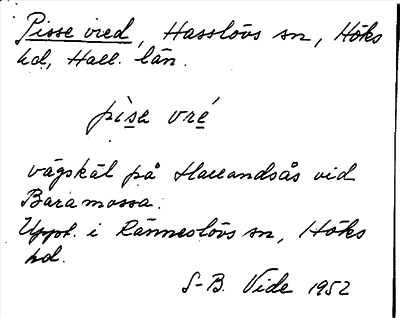 Pisse vred, Hasslövs sn, Höks
hd, Hall. län.
pìsa vré
vägskäl på Hallandsås vid
Baramossa.
Uppt. i Ränneslövs sn, Höks
hd.
S-B. Vide 1952